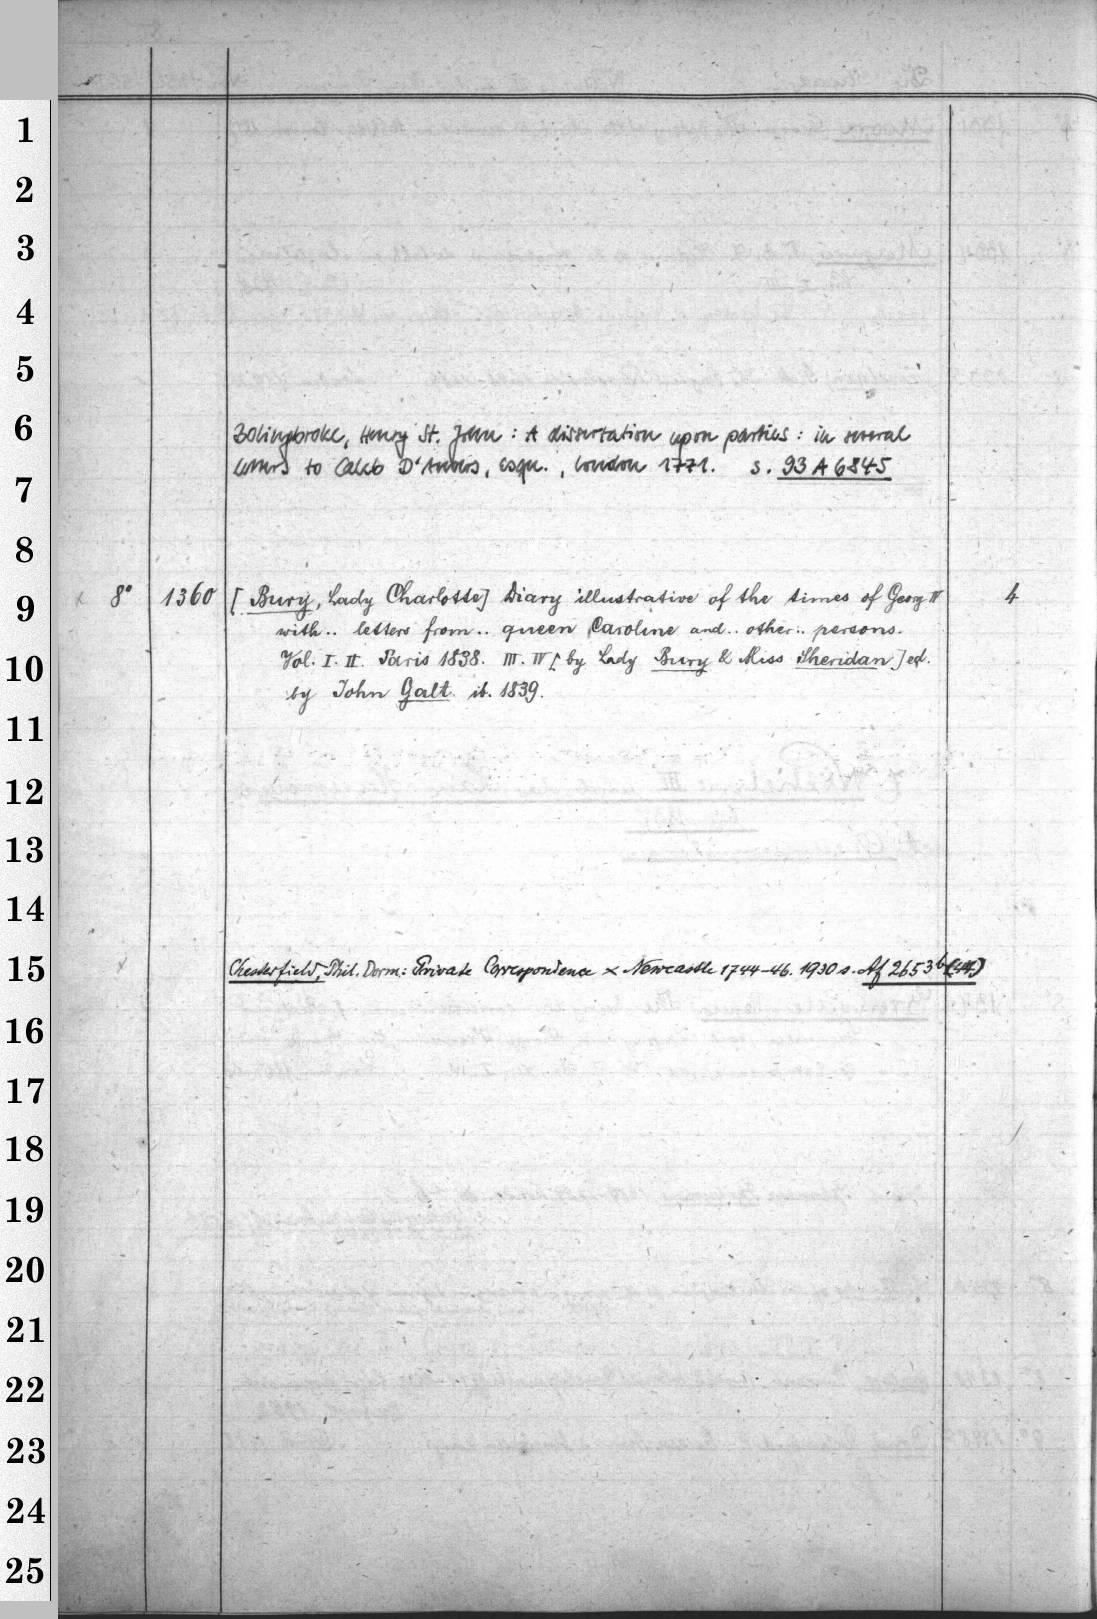 1
2
3
4
5
6
Bolingbroke, Henry St. John : A dissertation upon parties : in several
letters to Caleb D'Anvers, Esqu., London 1771. s. 93 A 6845
7
8
9
x 8° 1360 [Bury, Lady Charlotte] Diary illustrative of the times of Georg IV 4
with .. letters from .. queen Caroline and .. other .. persons.
10
Vol. I. II. Paris 1838. III. IV [by Lady Bury & Miss Sheridan] ed.
by John Galt. ib. 1839.
11
12
13
14
15
Chesterfield, Phil. Dorm.: Private Correspondence x Newcastle 1744-46. 1930 s. Af 2653 b
16
17
18
19
20
21
22
23
24
25